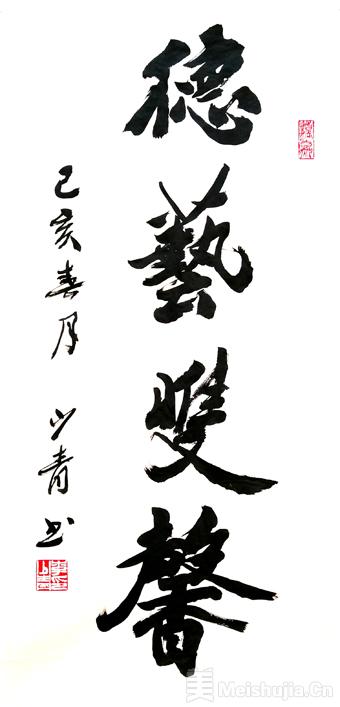 德藝雙馨
己亥春月 少青书
美 Meishujia.Cn